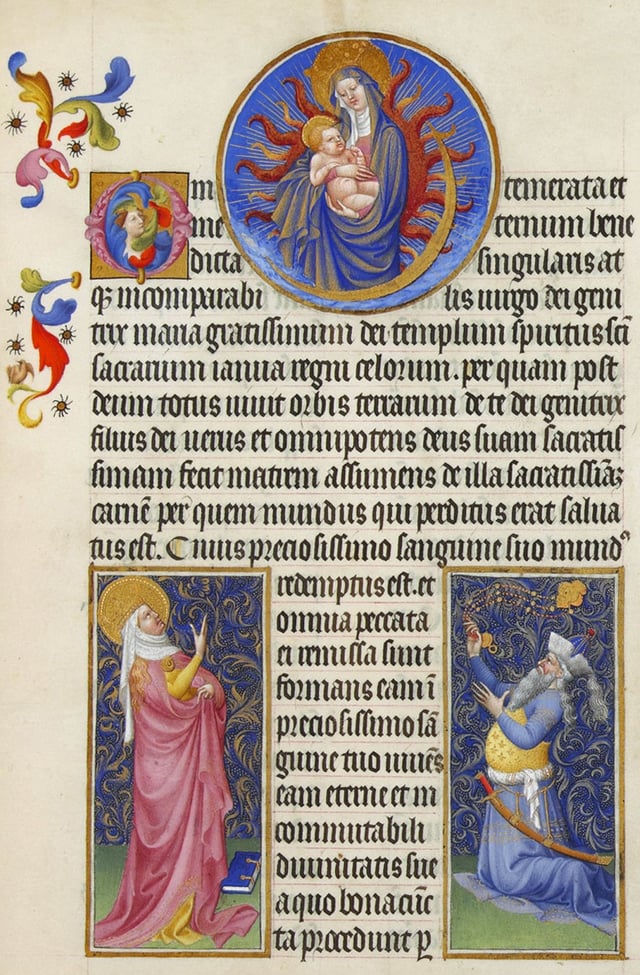 O in temerata et
ine ternum bene
dicta singularis at
qꝫ incomparabi lis uirgo dei geni
trix maria gratissimum dei templum spiritus sc̄i
sacrarium ianua regni celorum. per quam post
deum totus uiuit orbis terrarum de te dei genitrix
filius dei uerus et omnipotens deus suam sacratis
simam fecit matrem assumens de illa sacratissiāꝫ
carnē per quem mundus qui perditus erat salua
tus est. Cuius preciosissimo sanguine suo mundꝰ
redemptus est. et
omnia peccata
ei remissa sunt
formans eam ī
preciosissimo sā
guine tuo uiuēs
eam eterne et in
commutabili
diuinitatis sue
a quo bona cūc
ta procedunt p̄